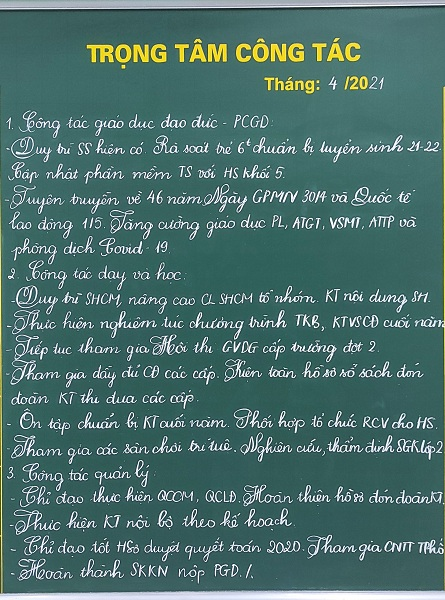 TRỌNG TÂM CÔNG TÁC
Tháng: 4 /2021
1. Công tác giáo dục đạo đức - PCGD:
- Duy trì SS hiện có. Rà soát trẻ 6t chuẩn bị tuyển sinh 21-22.
Cập nhật phần mềm TS với HS khối 5.
- Tuyên truyền về 46 năm Ngày GPMN 30/4 và Quốc tế
lao động 1/5. Tăng cường giáo dục PL, ATGT, VSMT, ATTP và
phòng dịch Covid - 19.
2. Công tác dạy và học:
- Duy trì SHCM, nâng cao CL SHCM tổ nhóm. KT nội dung SH.
- Thực hiện nghiêm túc chương trình TKB, KTVSCĐ cuối năm
- Tiếp tục tham gia Hội thi GVDG cấp trường đợt 2.
- Tham gia đầy đủ CĐ các cấp. Kiện toàn hồ sơ sổ sách đón
đoàn KT thi đua các cấp.
- Ôn tập chuẩn bị KT cuối năm. Phối hợp tổ chức RCV cho HS.
- Tham gia các sân chơi trí tuệ. Nghiên cứu, thẩm định SGK lớp 2
3. Công tác quản lý:
- Chỉ đạo thực hiện QCCM, QCLĐ. Hoàn thiện hồ sơ đón đoàn KT.
- Thực hiện KT nội bộ theo kế hoạch.
- Chỉ đạo tốt HSơ duyệt quyết toán 2020. Tham gia CNTT TPhố
- Hoàn thành SKKN nộp PGD./.